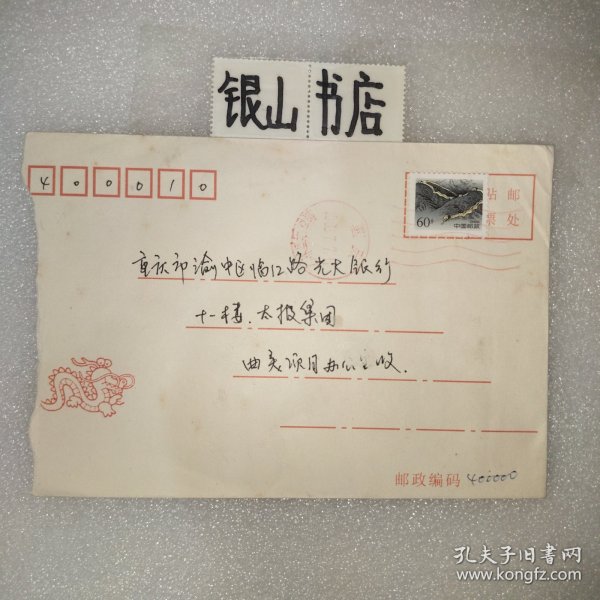 银山 书店
400010
贴邮
票处
60分
中国邮政
重庆市渝中区临江路光大银行
十一楼.太极集团
曲美项目办公室收.
邮政编码 400000
孔夫子旧书网
www.kongfz.com